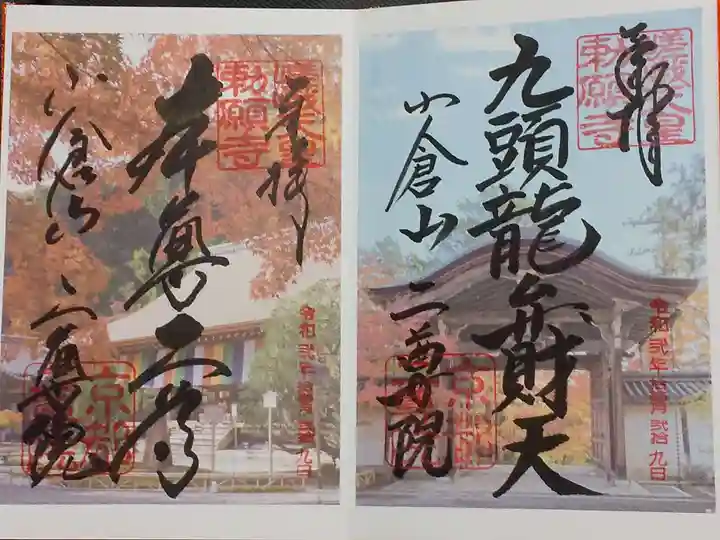 奉拝
嵯峨天皇
勅願寺
九頭龍弁財天
小倉山
二尊院
京都
令和弐年拾月弐拾九日
奉拝
嵯峨天皇
勅願寺
本尊二尊
小倉山
二尊院
京都
令和弐年拾月弐拾九日